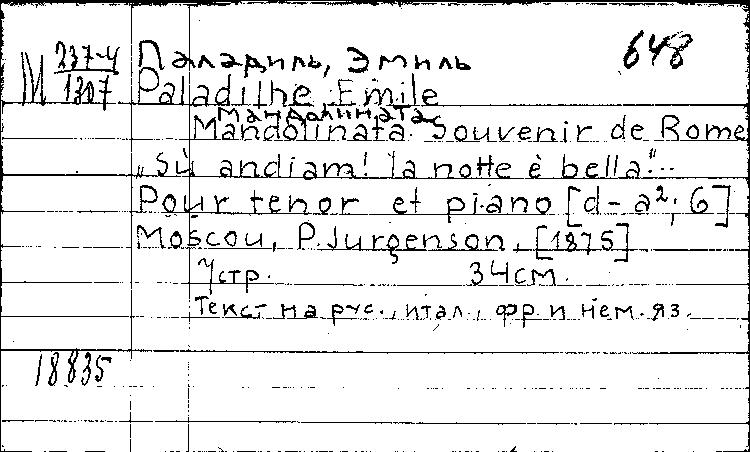 М 237-4/1307
648
Паладиль, Эмиль
Paladilhe, Emile
Мандолината
Mandolinata. Souvenir de Rome
„Sù andiam! la notte è bella“...
Pour tenor et piano [d-a²; G]
Moscou, P. Jurgenson, [1875]
7 стр. 34 см.
Текст на рус., итал., фр. и нем. яз.
18835